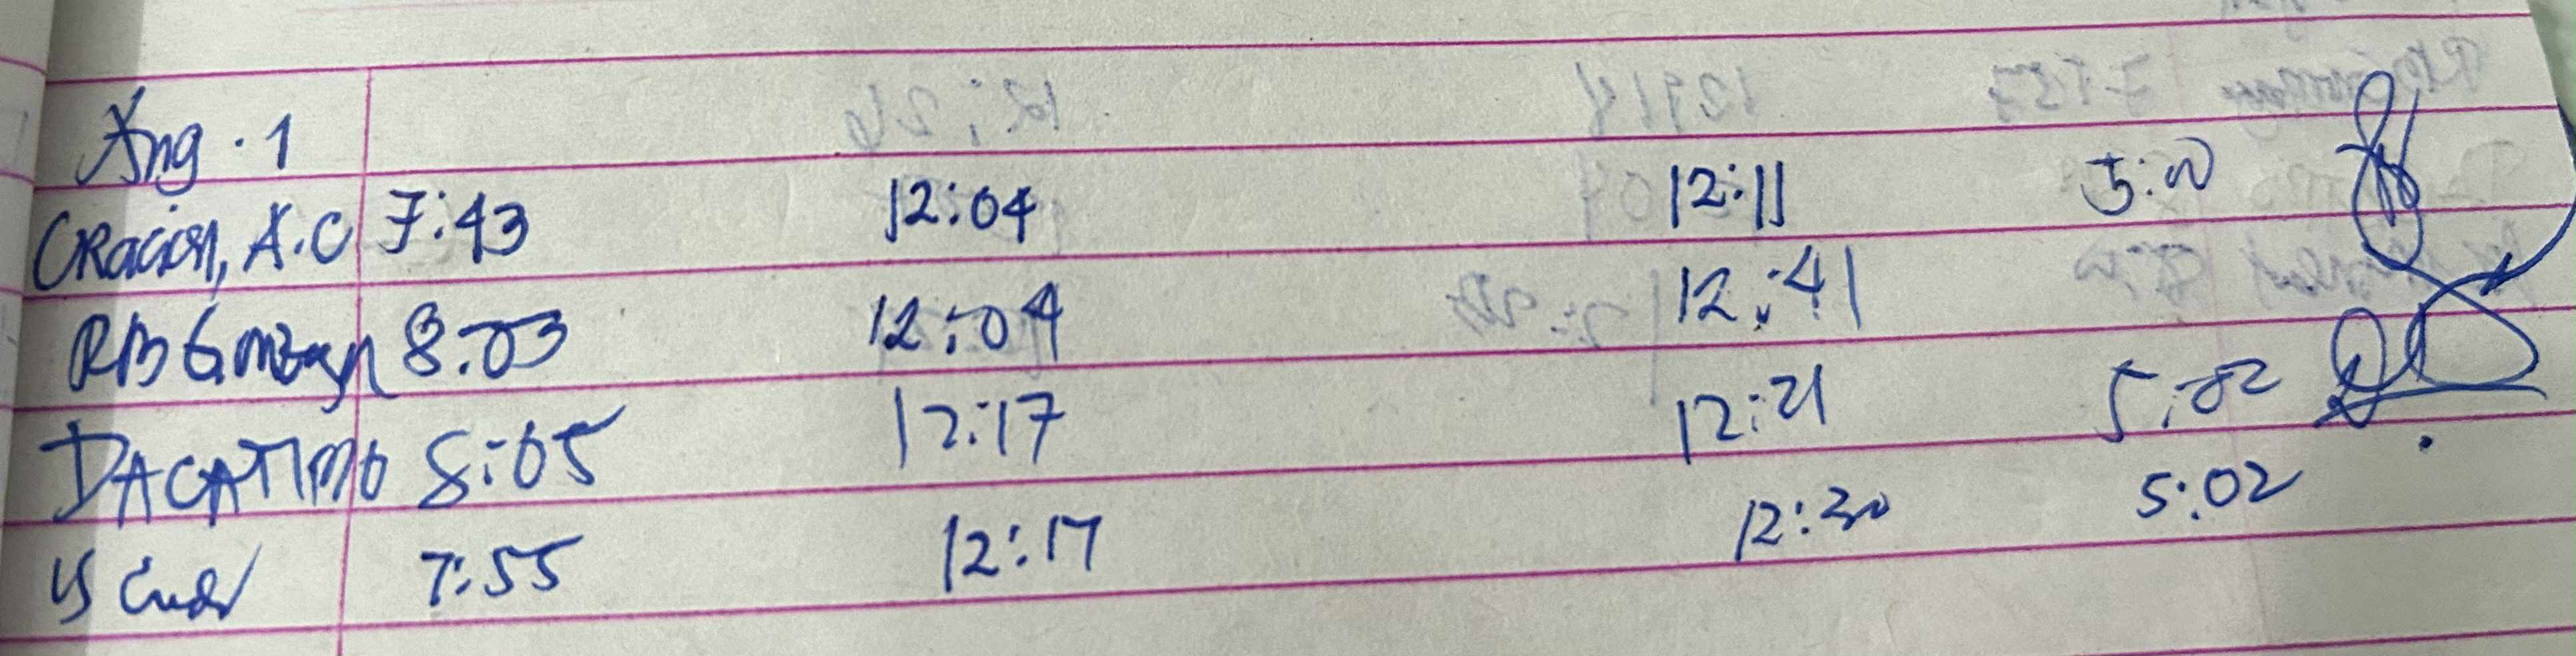 Aug. 1
CRacion, A.C 7:43 12:04 12:11 5:00
RB 8:03 12:04 12:41
DACATIMO 8:05 12:17 12:21 5:02
7:55 12:17 12:30 5:02